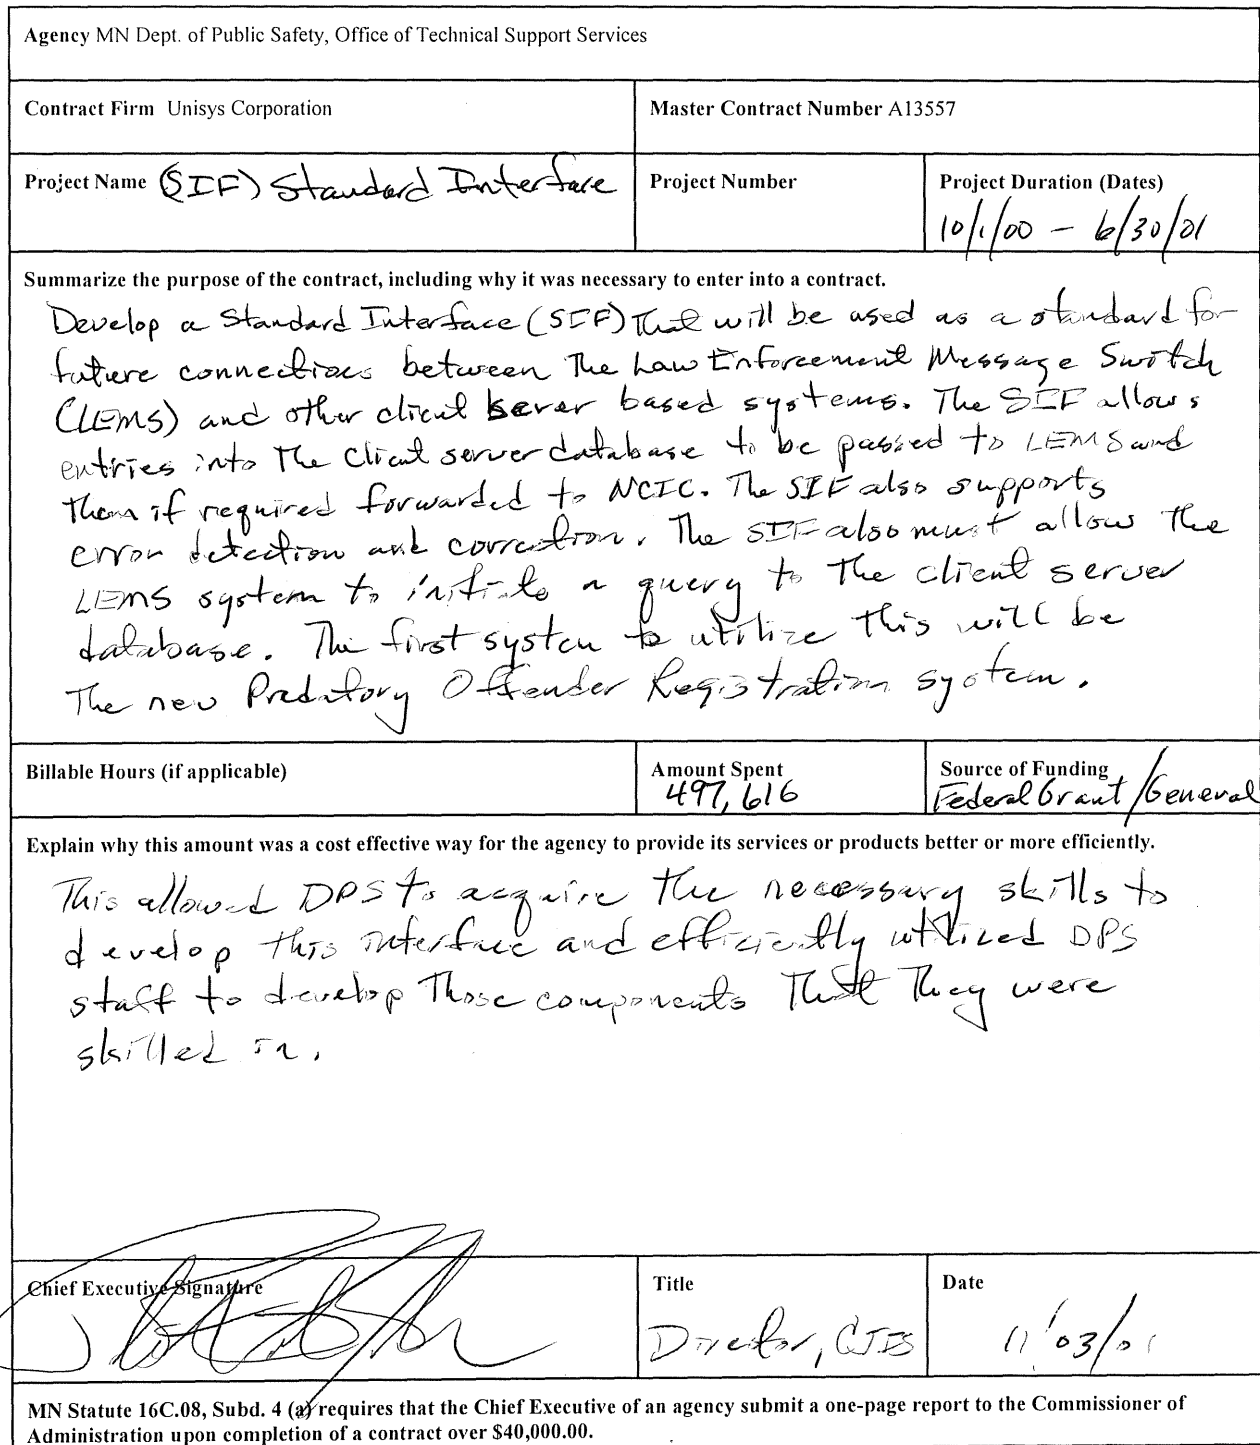 Agency MN Dept. of Public Safety, Office of Technical Support Services
Contract Firm Unisys Corporation
Master Contract Number A13557
Project Name (SIF) Standard Interface
Project Number
Project Duration (Dates)
10/1/00 - 6/30/01
Summarize the purpose of the contract, including why it was necessary to enter into a contract.
Develop a Standard Interface (SIF) That will be used as a standard for
future connections between The Law Enforcement Message Switch
(LEMS) and other client server based systems. The SIF allows
entries into The Client server database to be passed to LEMS and
then if required forwarded to NCIC. The SIF also supports
error detection and correction. The SIF also must allow the
LEMS system to initiate a query to the client server
database. The first system to utilize this will be
The new Predatory Offender Registration system.
Billable Hours (if applicable)
Amount Spent
497,616
Source of Funding
Federal Grant/General
Explain why this amount was a cost effective way for the agency to provide its services or products better or more efficiently.
This allowed DPS to acquire the necessary skills to
develop this interface and efficiently utilized DPS
staff to develop Those components That They were
skilled in.
Chief Executive Signature
Title
Director, CJIS
Date
11/03/01
MN Statute 16C.08, Subd. 4 (a) requires that the Chief Executive of an agency submit a one-page report to the Commissioner of
Administration upon completion of a contract over $40,000.00.